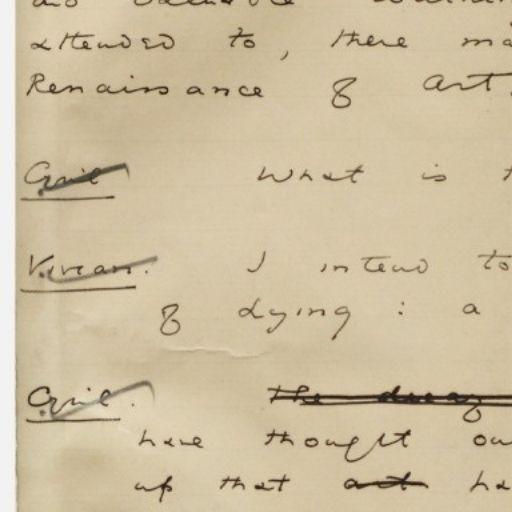 attended to, there
Renaissance of Art.
Cyril What is
Vivian. I intend to
of dying: a
Cyril. The decay
have thought
up that art